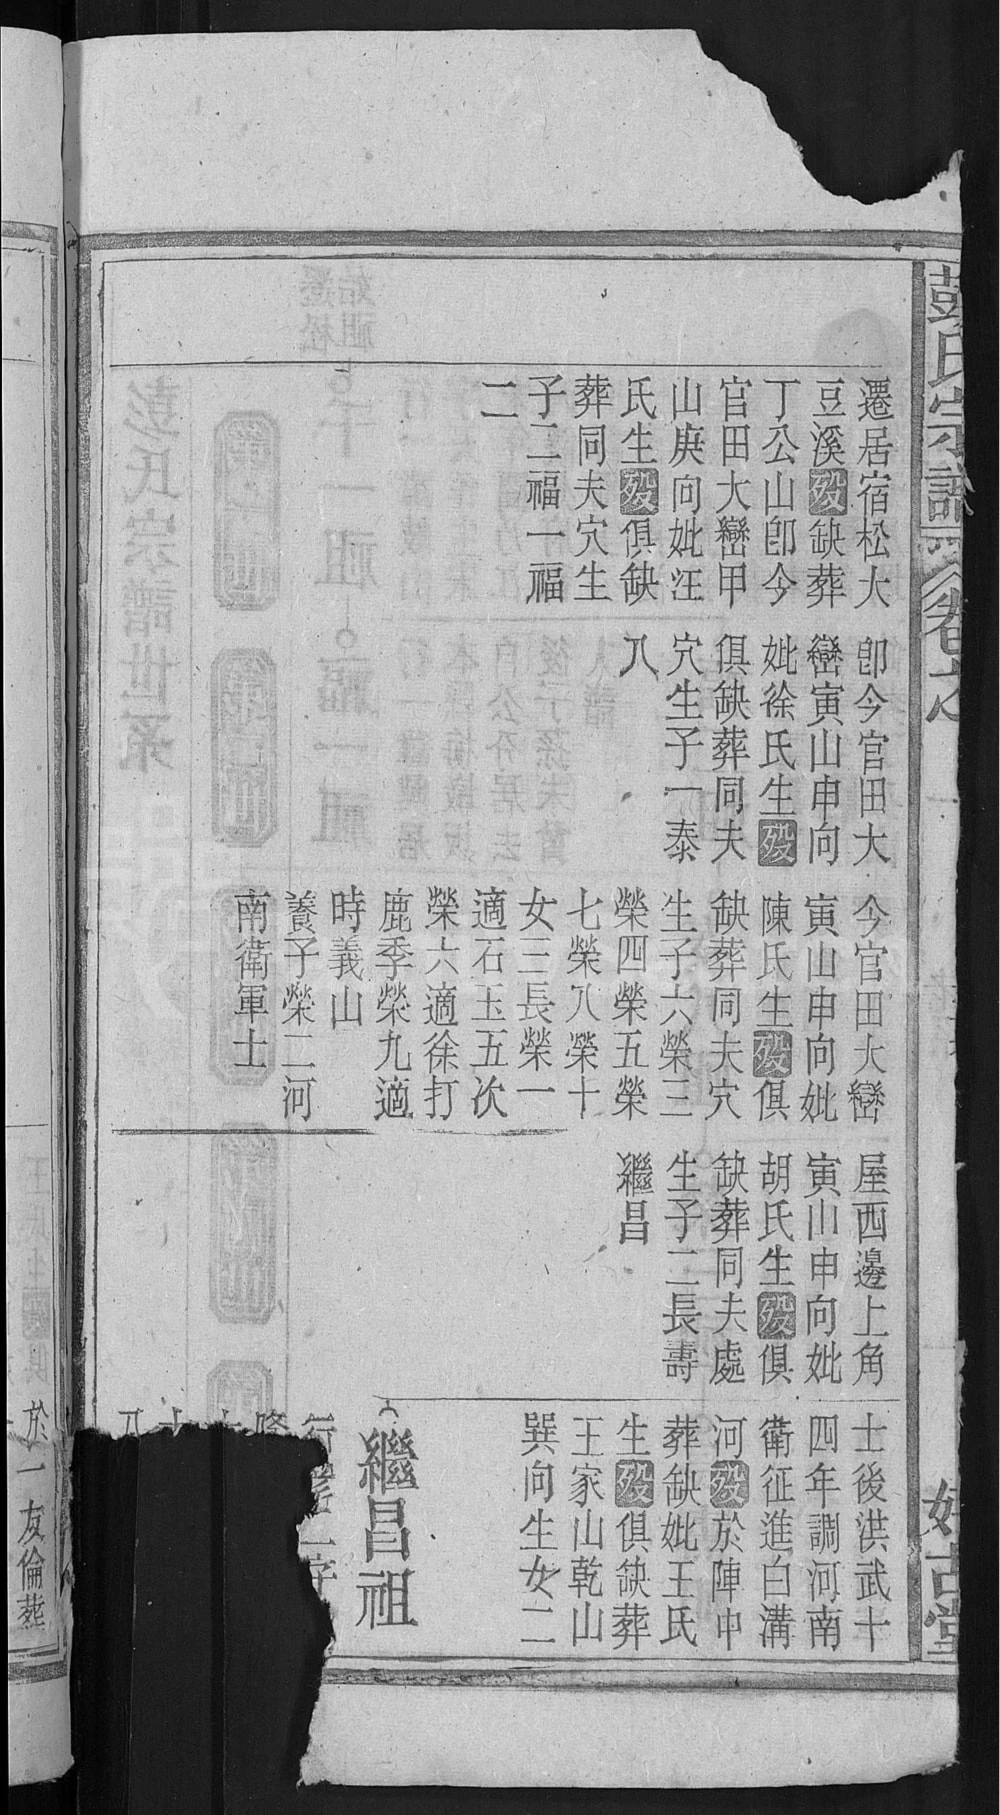 彭氏宗譜
卷之
一
好古堂
遷居宿松大
豆溪歿缺葬
丁公山卽今
官田大巒甲
山庚向妣汪
氏生歿俱缺
葬同夫穴生
子二福一福
二
卽今官田大
巒寅山申向
妣徐氏生歿
俱缺葬同夫
穴生子一泰
八
今官田大巒
寅山申向妣
陳氏生歿俱
缺葬同夫穴
生子六榮三
榮四榮五榮
七榮八榮十
女三長榮一
適石玉五次
榮六適徐打
鹿季榮九適
時義山
養子榮二河
南衛軍士
屋西邊上角
寅山申向妣
胡氏生歿俱
缺葬同夫處
生子二長壽
繼昌
士後洪武十
四年調河南
衛征進白溝
河歿於陣中
葬缺妣王氏
生歿俱缺葬
王家山乾山
巽向生女二
繼昌祖
於一友倫葬